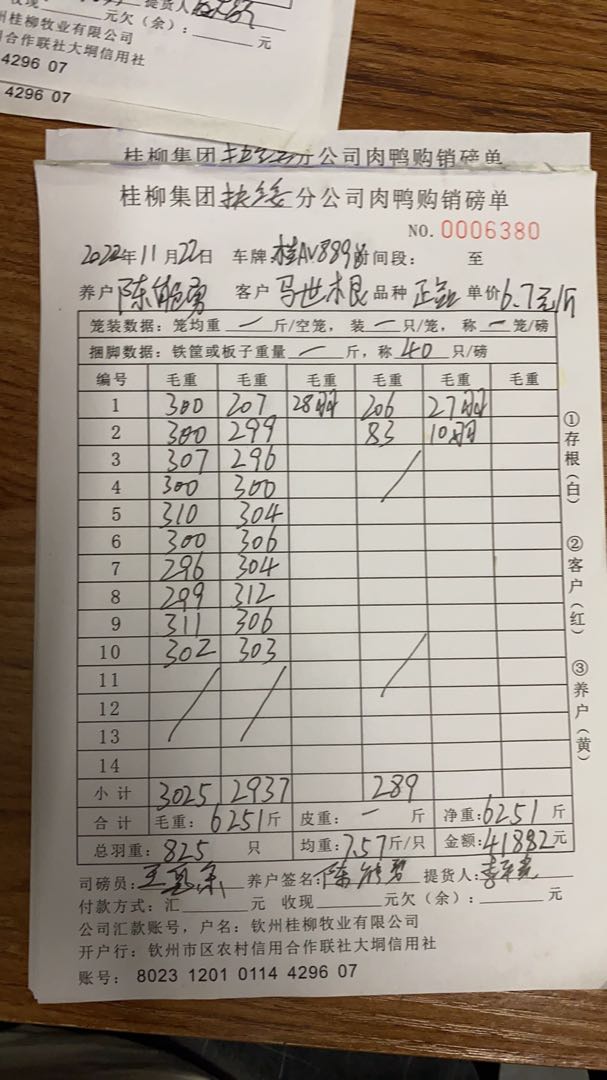 收现 元 提货人
元欠（余）： 元
州桂柳牧业有限公司
合作联社大垌信用社
4296 07
4296 07
桂柳集团 分公司肉鸭购销磅单
桂柳集团扶绥分公司肉鸭购销磅单
NO. 0006380
2022年11月22日 车牌 桂AV889 时间段： 至
养户 陈 勇 客户 马世根 品种 单价 6.7元/斤
笼装数据：笼均重 一 斤/空笼，装 一 只/笼，称 一 笼/磅
捆脚数据：铁筐或板子重量 一 斤，称 40 只/磅
编号 毛重 毛重 毛重 毛重 毛重 毛重
1 300 207 28羽 206 27羽
2 300 299 83 10羽
3 307 296
4 300 300
5 310 304
6 300 306
7 296 304
8 299 312
9 311 306
10 302 303
11
12
13
14
小计 3025 2937 289
合计 毛重：6251斤 皮重：一 斤 净重：6251斤
总羽重：825 只 均重：7.57斤/只 金额：41882元
司磅员： 养户签名：陈 勇 提货人：李
付款方式：汇 元 收现 元欠（余）： 元
公司汇款账号，户名：钦州桂柳牧业有限公司
开户行：钦州市区农村信用合作联社大垌信用社
账号： 8023 1201 0114 4296 07
①存根（白）
②客户（红）
③养户（黄）